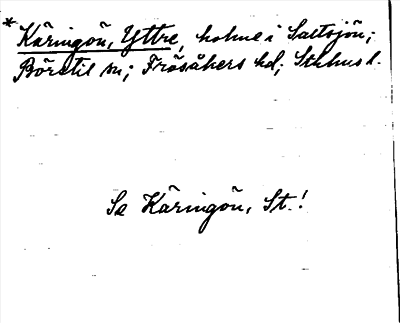 * Käringön, Yttre, holme i Saltsjön;
Börstil sn; Frösåkers hd; Sthms l.
Se Käringön, St.!